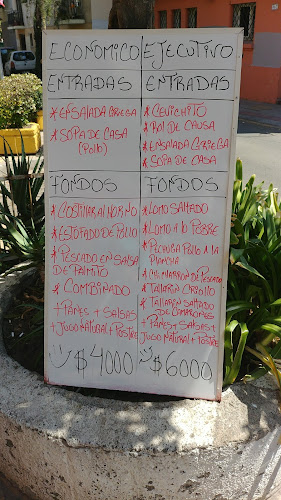 ECONOMICO
ENTRADAS
* ENSALADA GRIEGA
* SOPA DE CASA
(Pollo)
FONDOS
* COSTILLAR AL HORNO
* ESTOFADO DE POLLO
* PESCADO EN SALSA
DE PALMITO
* COMBINADO
+ PANES + SALSAS
+ JUGO NATURAL + POSTRE
$4000
EJECUTIVO
ENTRADAS
* CEVICHITO
* ROL DE CAUSA
* ENSALADA GRIEGA
* SOPA DE CASA
FONDOS
* LOMO SALTADO
* LOMO A LO POBRE
* PECHUGA POLLO A LA
PLANCHA
* CHICHARRON DE PESCADO
* TALLARIN CRIOLLO
* TALLARIN SALTADO
DE CAMARONES
+ PANES + SALSAS +
JUGO NATURAL + POSTRE
$6000